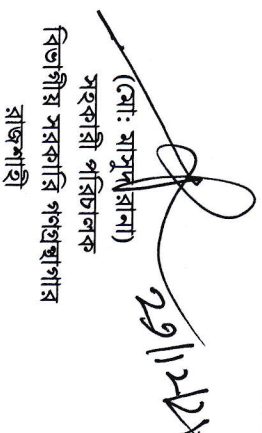 (মোঃ মাসুদ রানা)
সহকারী পরিচালক
বিভাগীয় সরকারি গণগ্রন্থাগার
রাজশাহী